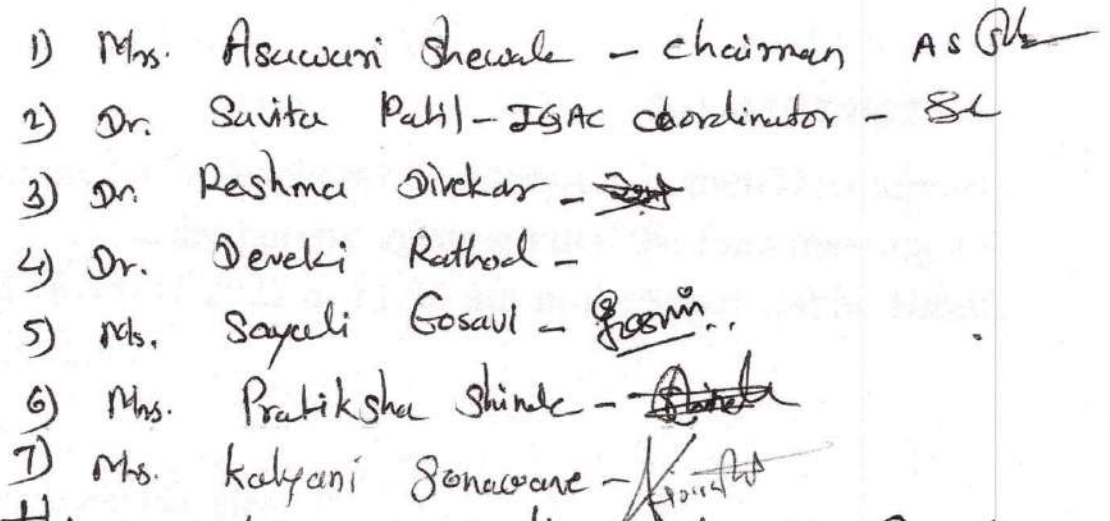 1) Mrs. Asawari Shewale - chairman AS
2) Dr. Savita Patil - IQAC coordinator -
3) Dr. Reshma Divekar -
4) Dr. Deveki Rathod -
5) Ms. Sayali Gosavi -
6) Mrs. Pratiksha Shinde -
7) Mrs. Kalyani Sonawane -